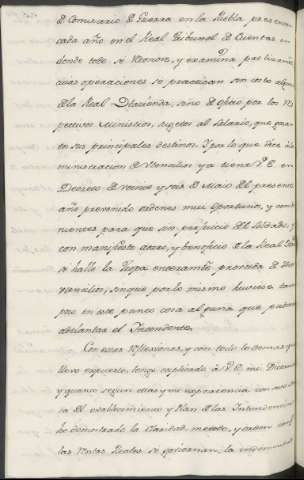 de Comisario de Guerra en la Puebla presentan
cada año en el Real Tribunal de Cuentas en
donde todo se reconoce, y examina
cuias operaciones se practican sin costo alguno
de la Real Hacienda, sino de oficio por los Res
pectivos Ministros, sujetos al Salario, que gozan
en sus principales destinos. Y por lo que dice
ministracion de Utensilios ya tiene V.E. en
Decreto de veinte y seis de Maio del presente
año prevenido ordenes mui oportunas, y conve
nientes para que sin perjuicio del Soldado, y
con manifiesto ahorro, y beneficio de la Real
se halle la Tropa enteramte. provehida de
Utensilios, sin que por lo mismo huviese tam
poco en este punto cosa alguna que pudiera
adelantar el Intendente.
Con estas reflexiones, y con todo lo demas que
llevo expuesto, tengo explicado à V.E. mi Dictamen
y quanto segun ellas y mi experiencia
el establecimiento y Plan de las Intendencias
he demostrado la claridad, metodo, y orden con q.
las Rentas Reales se goviernan, la